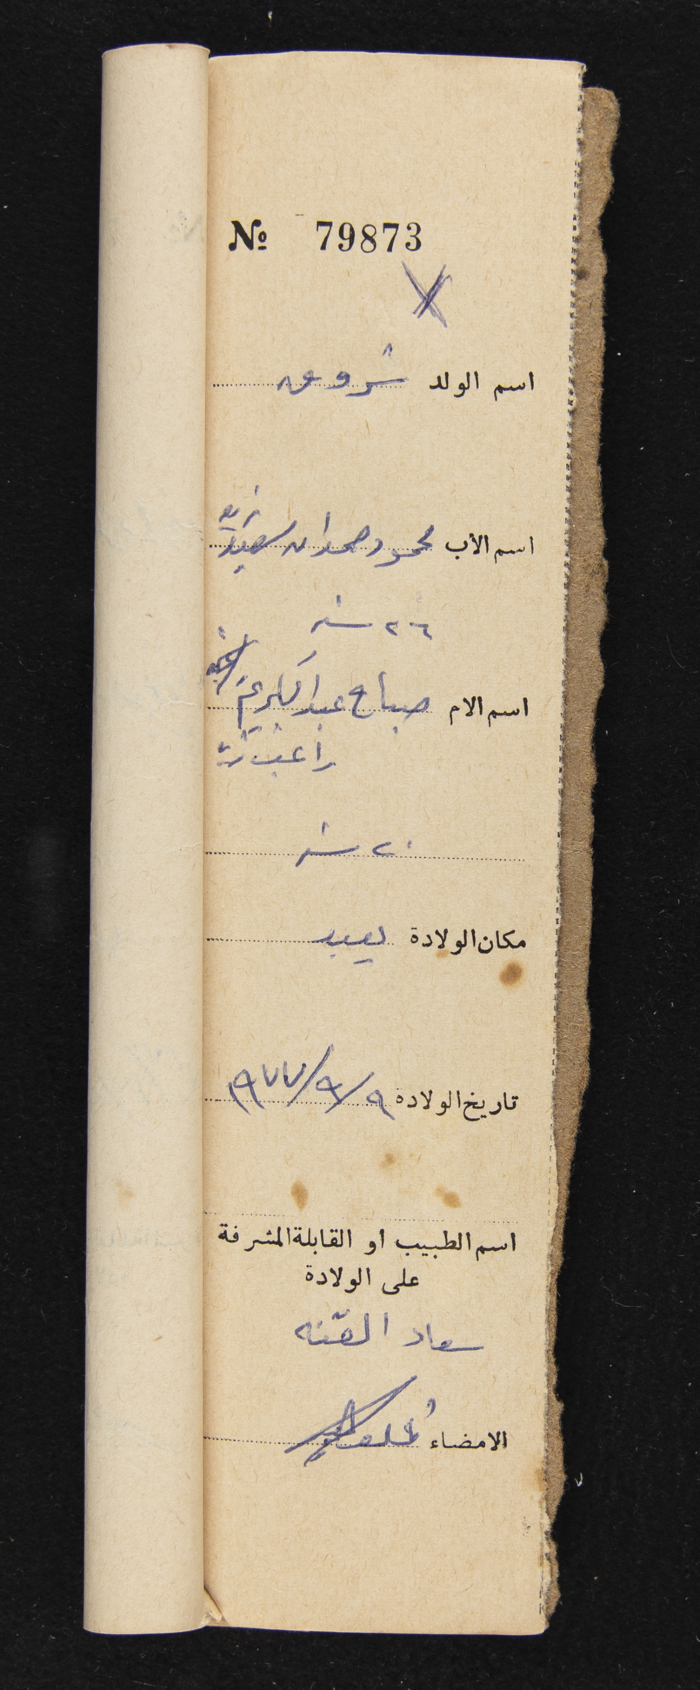 № 79873
اسم الولد شروق
اسم الأب محمود حمدان سعيد
٢٦ سنه
اسم الام صباح عبد الكريم
راغب
٢٠ سنه
مكان الولادة يعبد
تاريخ الولادة ٩/٩/٩٧٧
اسم الطبيب او القابلة المشرفة
على الولادة
سعاد القنه
الامضاء